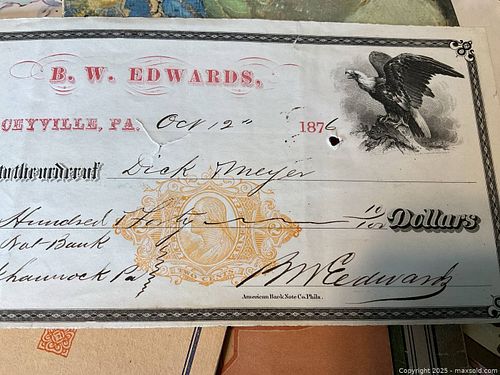 B. W. EDWARDS,
CEYVILLE, PA. Oct 12" 1876
to the order of Dick Meyer
Hundred & Forty 10/100 Dollars
Nat Bank
hannock Pa
BWEdwards
American Bank Note Co. Phila.
Copyright 2025 - maxsold.com